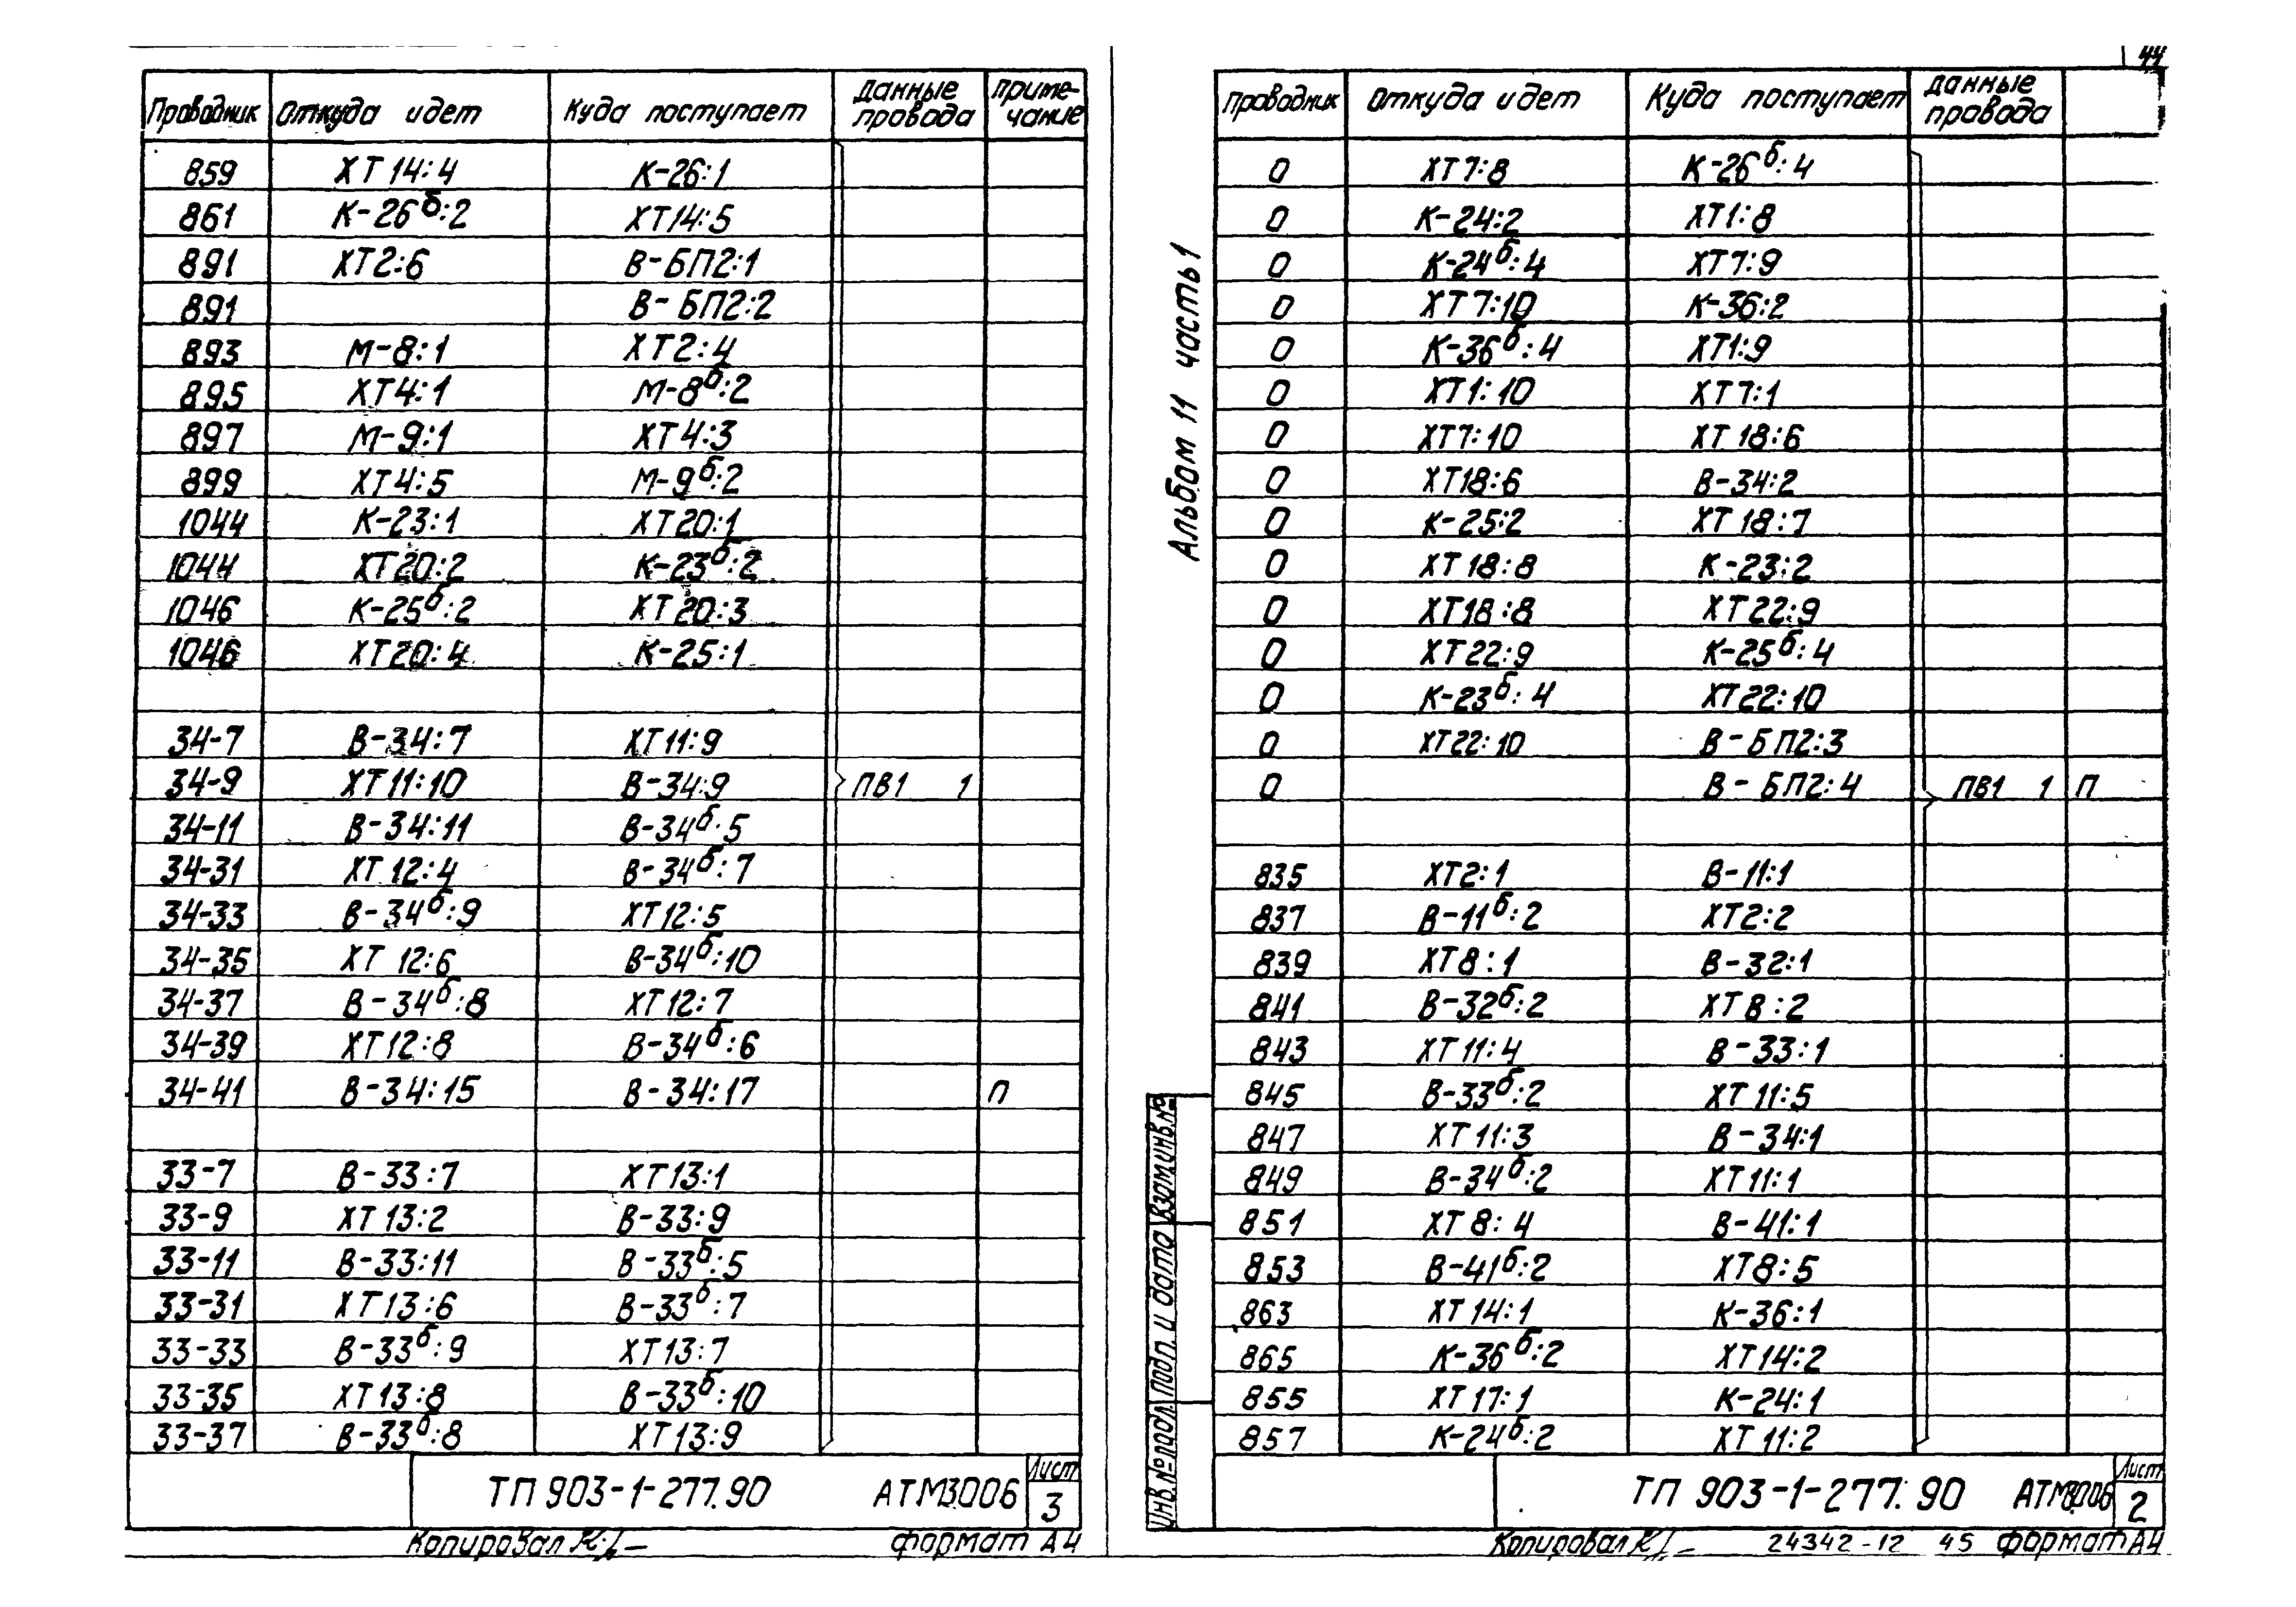 Проводник Откуда идет Куда поступает Данные провода Приме-чание
859 ХТ14:4 К-26:1
861 К-26б:2 ХТ14:5
891 ХТ2:6 В-БП2:1
891 В-БП2:2
893 М-8:1 ХТ2:4
895 ХТ4:1 М-8б:2
897 М-9:1 ХТ4:3
899 ХТ4:5 М-9б:2
1044 К-23:1 ХТ20:1
1044 ХТ20:2 К-23б:2
1046 К-25б:2 ХТ20:3
1046 ХТ20:4 К-25:1
34-7 В-34:7 ХТ11:9
34-9 ХТ11:10 В-34:9 ПВ1 1
34-11 В-34:11 В-34б:5
34-31 ХТ12:4 В-34б:7
34-33 В-34б:9 ХТ12:5
34-35 ХТ12:6 В-34б:10
34-37 В-34б:8 ХТ12:7
34-39 ХТ12:8 В-34б:6
34-41 В-34:15 В-34:17 П
33-7 В-33:7 ХТ13:1
33-9 ХТ13:2 В-33:9
33-11 В-33:11 В-33б:5
33-31 ХТ13:6 В-33б:7
33-33 В-33б:9 ХТ13:7
33-35 ХТ13:8 В-33б:10
33-37 В-33б:8 ХТ13:9
ТП 903-1-277.90 АТМ3006 Лист 3
Копировал Формат А4
44
Альбом 11 часть 1
Проводник Откуда идет Куда поступает Данные провода
0 ХТ7:8 К-26б:4
0 К-24:2 ХТ1:8
0 К-24б:4 ХТ7:9
0 ХТ7:10 К-36:2
0 К-36б:4 ХТ1:9
0 ХТ1:10 ХТ7:1
0 ХТ7:10 ХТ18:6
0 ХТ18:6 В-34:2
0 К-25:2 ХТ18:7
0 ХТ18:8 К-23:2
0 ХТ18:8 ХТ22:9
0 ХТ22:9 К-25б:4
0 К-23б:4 ХТ22:10
0 ХТ22:10 В-БП2:3
0 В-БП2:4 ПВ1 1 П
835 ХТ2:1 В-11:1
837 В-11б:2 ХТ2:2
839 ХТ8:1 В-32:1
841 В-32б:2 ХТ8:2
843 ХТ11:4 В-33:1
845 В-33б:2 ХТ11:5
847 ХТ11:3 В-34:1
849 В-34б:2 ХТ11:1
851 ХТ8:4 В-41:1
853 В-41б:2 ХТ8:5
863 ХТ14:1 К-36:1
865 К-36б:2 ХТ14:2
855 ХТ17:1 К-24:1
857 К-24б:2 ХТ11:2
Инв.№подл. Подп. и дата Взам.инв.№
ТП 903-1-277.90 АТМ3006 Лист 2
Копировал 24342-12 45 Формат А4